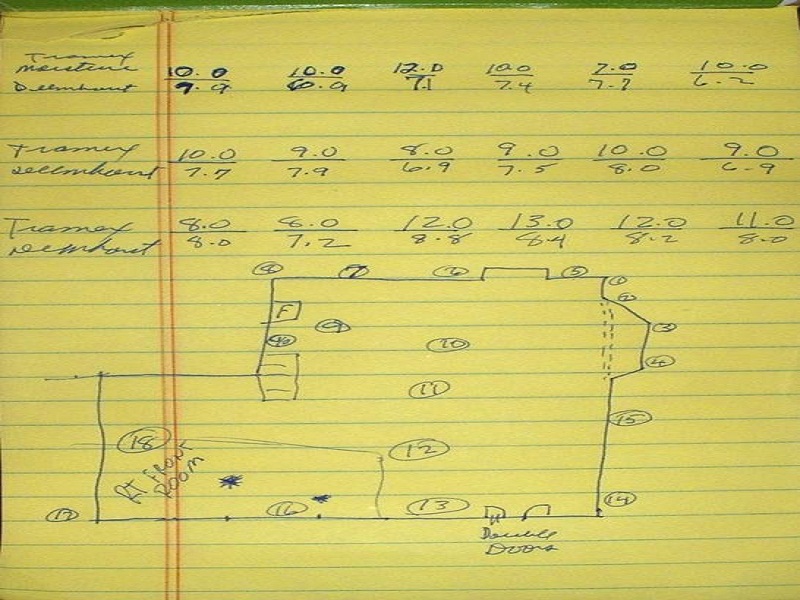 Tramex
Moisture 10.0 10.0 12.0 10.0 7.0 10.0
Delmhorst 7.9 6.9 7.1 7.4 7.7 6.2
Tramex 10.0 9.0 8.0 9.0 10.0 9.0
Delmhorst 7.7 7.9 6.9 7.5 8.0 6.9
Tramex 8.0 8.0 12.0 13.0 12.0 11.0
Delmhorst 8.0 7.2 8.8 8.4 8.2 8.0
8 7 6 5 1
2
F 9 3
10
4
11
15
18 12
RT FRONT
ROOM
17 16 13 14
Double
Doors